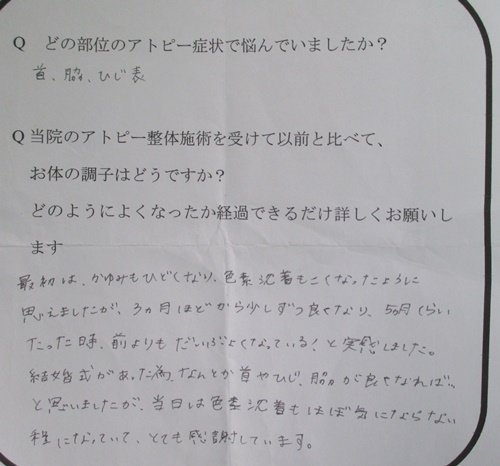 Q どの部位のアトピー症状で悩んでいましたか?
首、脇、ひじ表
Q 当院のアトピー整体施術を受けて以前と比べて、
お体の調子はどうですか?
どのようによくなったか経過できるだけ詳しくお願いし
ます
最初は、かゆみもひどくなり、色素沈着もこくなったように
思えましたが、3ヵ月ほどから少しずつ良くなり、5ヵ月くらい
たった時、前よりもだいぶよくなっている!と実感しました。
結婚式があった為、なんとか首やひじ、脇が良くなれば…
と思いましたが、当日は色素沈着もほぼ気にならない
程になっていて、とても感謝しています。